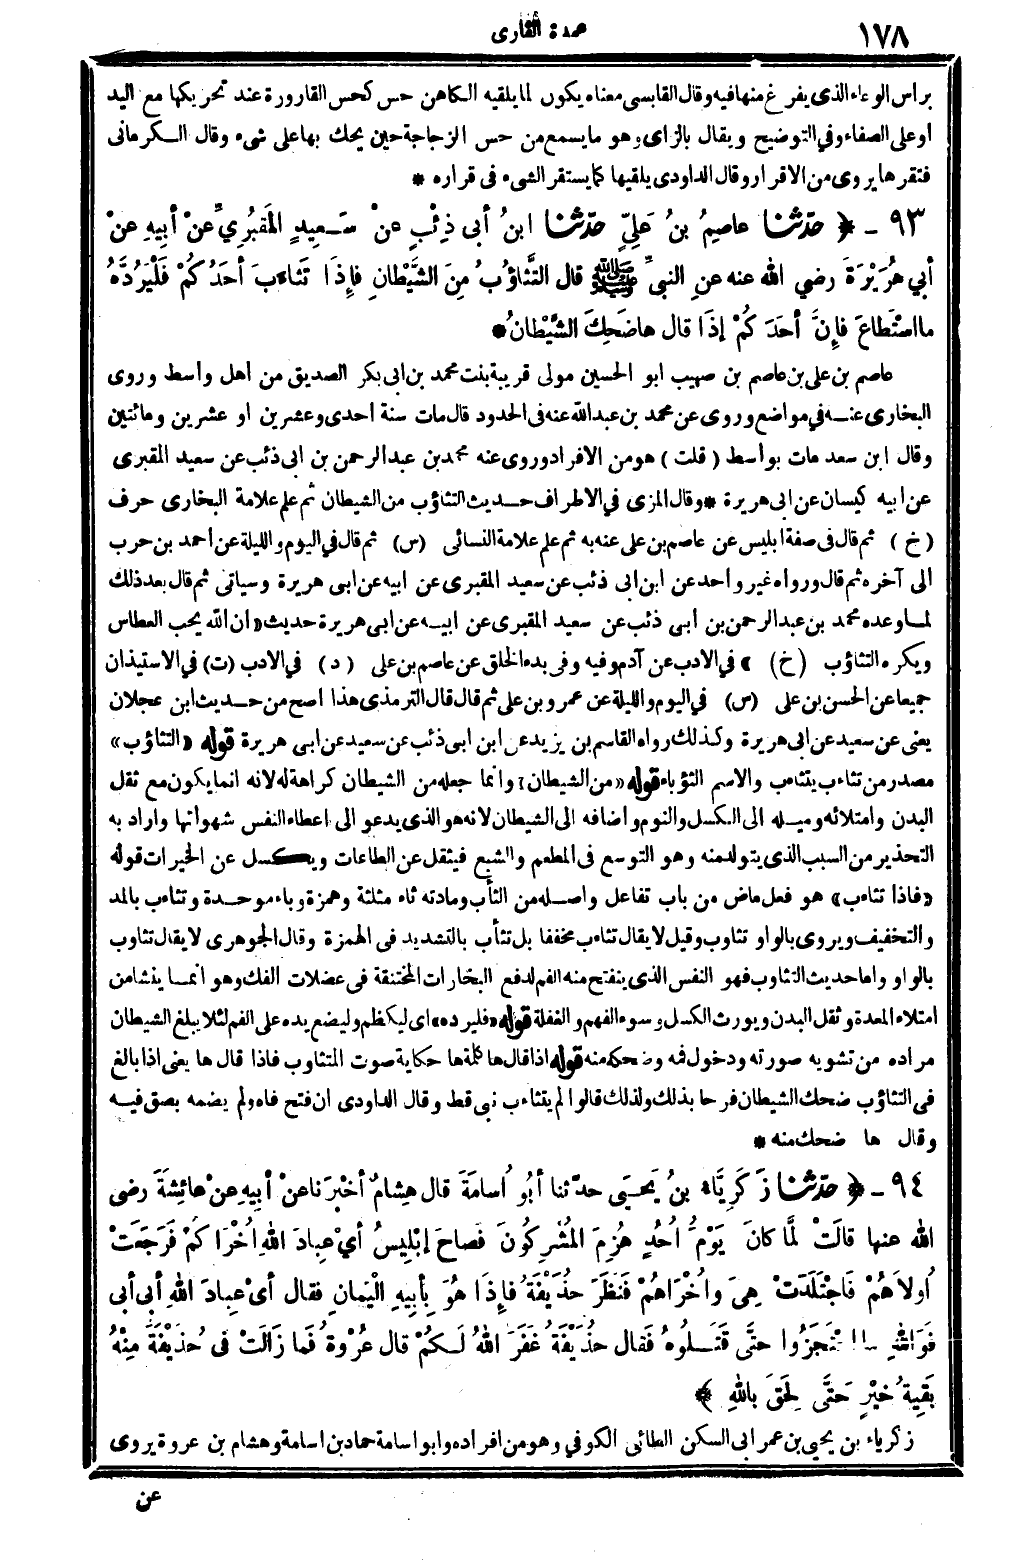 ١٧٨
عمدة القارى
برأس الوعاء الذى يفرغ منها فيه وقال القابسى معناه يكون لما يلقيه الكاهن حس كحس القارورة عند تحريكها مع اليد
أو على الصفاء وفي التوضيح ويقال بالزاى وهو مايسمع من حس الزجاجة حين يحك بها على شىء وقال الكرمانى
فتقرها يروى من الاقرار وقال الداودى يلقيها كما يستقر الشىء فى قراره *
٩٣ - ﴿ حَدَّثَنَا عاصِمُ بنُ عَلِيٍّ حَدَّثَنَا ابنُ أبى ذِئْبٍ عنْ سَعِيدٍ المَقْبُرِيِّ عنْ أبِيهِ عنْ
أبي هُرَيْرَةَ رضي الله عنه عنِ النبىِّ ﷺ قال التَّثَاؤُبُ مِنَ الشَّيْطانِ فإِذَا تَثاءَبَ أحَدُكُمْ فَلْيَرُدَّهُ
ما اسْتَطاعَ فإِنَّ أحَدَكُمْ إذَا قال ها ضَحِكَ الشَّيْطانُ *
عاصم بن على بن عاصم بن صهيب ابو الحسين مولى قريبة بنت محمد بن ابى بكر الصديق من أهل وأسط وروى
البخارى عنه فى مواضع وروى عن محمد بن عبدالله عنه فى الحدود قال مات سنة أحدى وعشرين او عشرين ومائتين
وقال ابن سعد مات بوأسط (قلت) هو من الافراد وروى عنه محمد بن عبدالرحمن بن ابى ذئب عن سعيد المقبرى
عن ابيه كيسان عن ابى هريرة * وقال المزى في الاطراف حديث التثاؤب من الشيطان ثم علم علامة البخارى حرف
(خ) ثم قال فى صفة ابليس عن عاصم بن على عنه به ثم علم علامة النسائى (س) ثم قال في اليوم والليلة عن أحمد بن حرب
الى آخره ثم قال ورواه غير واحد عن ابن ابى ذئب عن سعيد المقبرى عن ابيه عن ابى هريرة وسياتى ثم قال بعد ذلك
لما وعده محمد بن عبدالرحمن بن أبى ذئب عن سعيد المقبرى عن ابيه عن ابى هريرة حديث «ان الله يحب العطاس
ويكره التثاؤب (خ) » في الادب عن آدم وفيه وفى بدء الخلق عن عاصم بن على (د) في الادب (ت) في الاستيذان
جميعا عن الحسن بن على (س) في اليوم والليلة عن عمرو بن على ثم قال قال الترمذى هذا اصح من حديث ابن عجلان
يعنى عن سعيد عن ابى هريرة وكذلك رواه القاسم بن يزيد عن ابن ابى ذئب عن سعيد عن ابى هريرة قوله «التثاؤب»
مصدر من تثاءب يتثاءب والاسم الثؤباء قوله «من الشيطان» وانما جعله من الشيطان كراهة له لانه انما يكون مع ثقل
البدن وامتلائه وميله الى الكسل والنوم وأضافه الى الشيطان لانه هو الذى يدعو الى اعطاء النفس شهواتها واراد به
التحذير من السبب الذى يتولد منه وهو التوسع فى المطعم والشبع فيثقل عن الطاعات ويكسل عن الخيرات قوله
«فاذا تثاءب» هو فعل ماض من باب تفاعل واصله من الثأب ومادته ثاء مثلثة وهمزة وباء موحدة وتثاءب بالمد
والتخفيف ويروى بالواو تثاوب وقيل لا يقال تثاءب مخففا بل تثأب بالتشديد فى الهمزة وقال الجوهرى لا يقال تثاوب
بالواو واما حديث التثاوب فهو النفس الذى ينفتح منه الفم لدفع البخارات المختنقة فى عضلات الفك وهو انما ينشا من
امتلاء المعدة وثقل البدن ويورث الكسل وسوء الفهم والغفلة قوله «فليرده» اى ليكظم وليضع يده على الفم لئلا يبلغ الشيطان
مراده من تشويه صورته ودخول فمه وضحكه منه قوله اذا قال ها كلمة ها حكاية صوت المتثاوب فاذا قال ها يعنى اذا بالغ
فى التثاؤب ضحك الشيطان فرحا بذلك ولذلك قالوا لم يتثاءب نبى قط وقال الداودى ان فتح فاه ولم يضمه بصق فيه
وقال ها ضحك منه *
٩٤ - ﴿ حَدَّثَنَا زَكَرِيَّاءُ بنُ يَحْيَى حدثنا أبُو اُسامَةَ قال هِشامٌ أخْبَرَنا عنْ أبِيهِ عنْ عائِشَةَ رضى
الله عنها قالَتْ لَمَّا كانَ يَوْمُ اُحُدٍ هُزِمَ المُشْرِكُونَ فَصاحَ إبْلِيسُ أىْ عِبادَ اللهِ اُخْرَاكُمْ فَرَجَعَتْ
اُولاَهُمْ فَاجْتَلَدَتْ هِىَ واُخْرَاهُمْ فَنَظَرَ حُذَيْفَةُ فإِذَا هُوَ بِأبِيهِ الْيَمانِ فقال أىْ عِبادَ اللهِ أبى أبى
فَوَاللهِ ما احْتَجَزُوا حتَّى قَتَلُوهُ فَقال حُذَيْفَةُ غَفَرَ اللهُ لَكُمْ قال عُرْوَةُ فَما زَالَتْ فى حُذَيْفَةَ مِنْهُ
بَقِيةُ خَيْرٍ حَتَّى لَحِقَ بِاللهِ ﴾
زكرياء بن يحيى بن عمر ابى السكن الطائى الكوفي وهو من افراده وابو اسامة حماد بن اسامة وهشام بن عروة يروى
عن